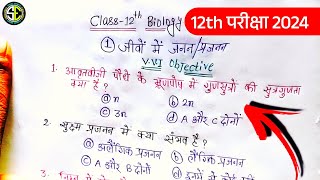 SC
12th परीक्षा 2024
Class-12th Biology
① जीवों में जनन/प्रजनन
VVI Objective
1. आवृतबीजी पौधे के भ्रूणपोष में गुणसूत्रों की सूत्रगुणता
क्या है ?
ⓐ n ⓑ 2n
ⓒ 3n ⓓ A और C दोनों
2. सूक्ष्म प्रजनन में क्या संभव है ?
ⓐ अलैंगिक प्रजनन ⓑ लैंगिक प्रजनन
ⓒ A और B दोनों ⓓ इनमें से कोई नहीं